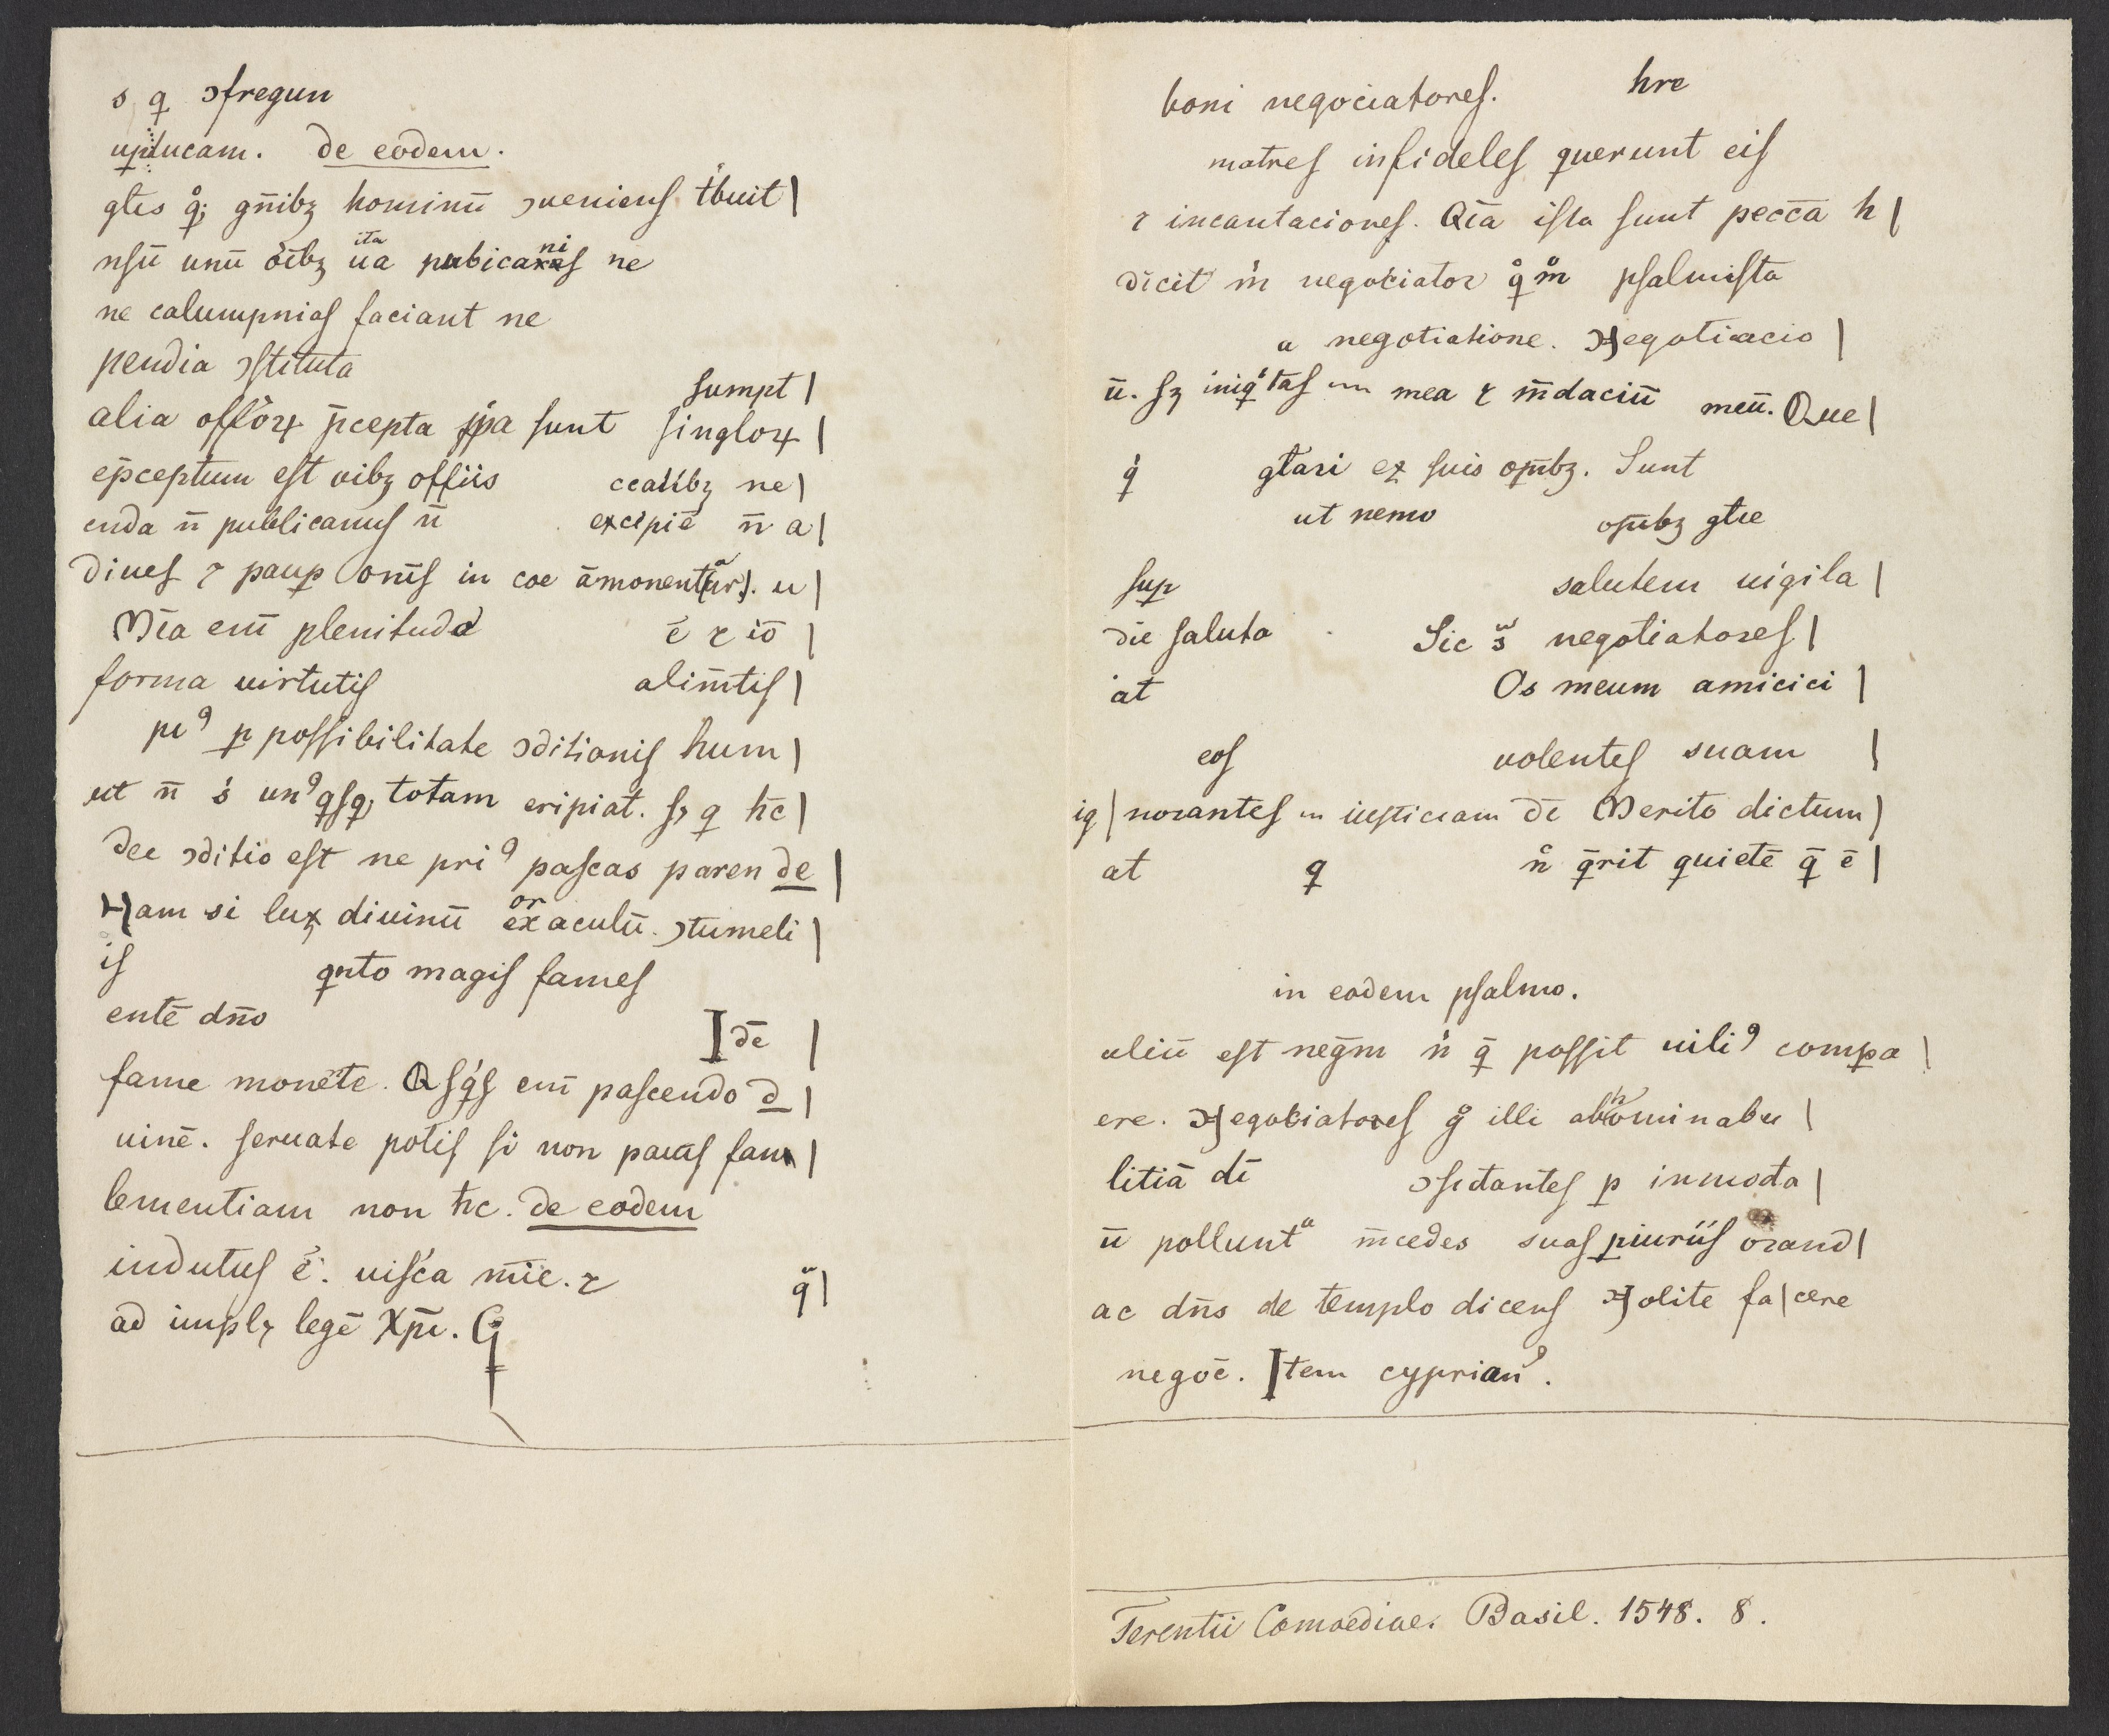 s q ɔfregun
uplucam. de eodem.
gtes q̊; gn̄ibꝫ hominū ɔueniens t'buit |
nsū unū oībꝫ ita ūa pubicanis ne
ne calumpnias faciant ne
pendia ɔstituta
sumpt |
alia offóꝝ p̄cepta pa sunt singloꝝ |
ep̄ceptum est oibꝫ offiis ccalibꝫ ne |
enda n̄ publicanus n̄ excipiē n̄ a |
diues ⁊ paup om̄s in coe āmonent(ur). u |
Mīa eni̅ plenitudo ē ⁊ iō |
forma uirtutis alim̄tis |
pi⁹ p possibilitate ɔditionis hum |
ut n̄ s' un⁹qsq; totam eripiat. sꝫ q h̄c |
dee ɔditio est ne pri⁹ pascas paren de |
Nam si lux diuinū or exaculū. ɔtumeli |
is qnto magis fames
entē dn̄o Idē |
fame monete. Qsq's eni̅ pascendo d |
uinē. seruate potis si non pauis fam |
lementiam non h̄c. de eodem
indutus ē. uisc'a mīe. ⁊ q̈ |
ad implꝫ legē Xp̄i. G
boni negociatores. hre
matres infideles querunt eis
⁊ incantaciones. Qīa ista sunt peccā h |
dīcit m̊ negociator q̊m̊ psalmista
a negotiatione. Negotiacio |
ū. sꝫ iniq'tas mea ⁊ m̄daciū meū. Que |
q' gl̄ari ex suis op̄ibꝫ. Sunt
ut nemo op̄ibꝫ gl̄ie
sup salutem uigila |
die saluta Sic s̈ negotiatores |
at Os meum amicici |
eos uolentes suam |
ig | norantes iusticiam dī Merito dictum |
at q n̊ q̄rit quietē q̄ ē |
in eodem psalmo.
aliū est neḡm n̊ q̄ possit uili⁹ compa |
ere. Negociatores g̊ illi abhominabu |
litiā dī ɔsidantes p inmoda |
ū pollunt m̄cedes suas piuriis orand |
ac dn̄s de templo dicens Nolite fa | cere
negoē. Item cyprian⁹.
Terentii Comoediae. Basil. 1548. 8.